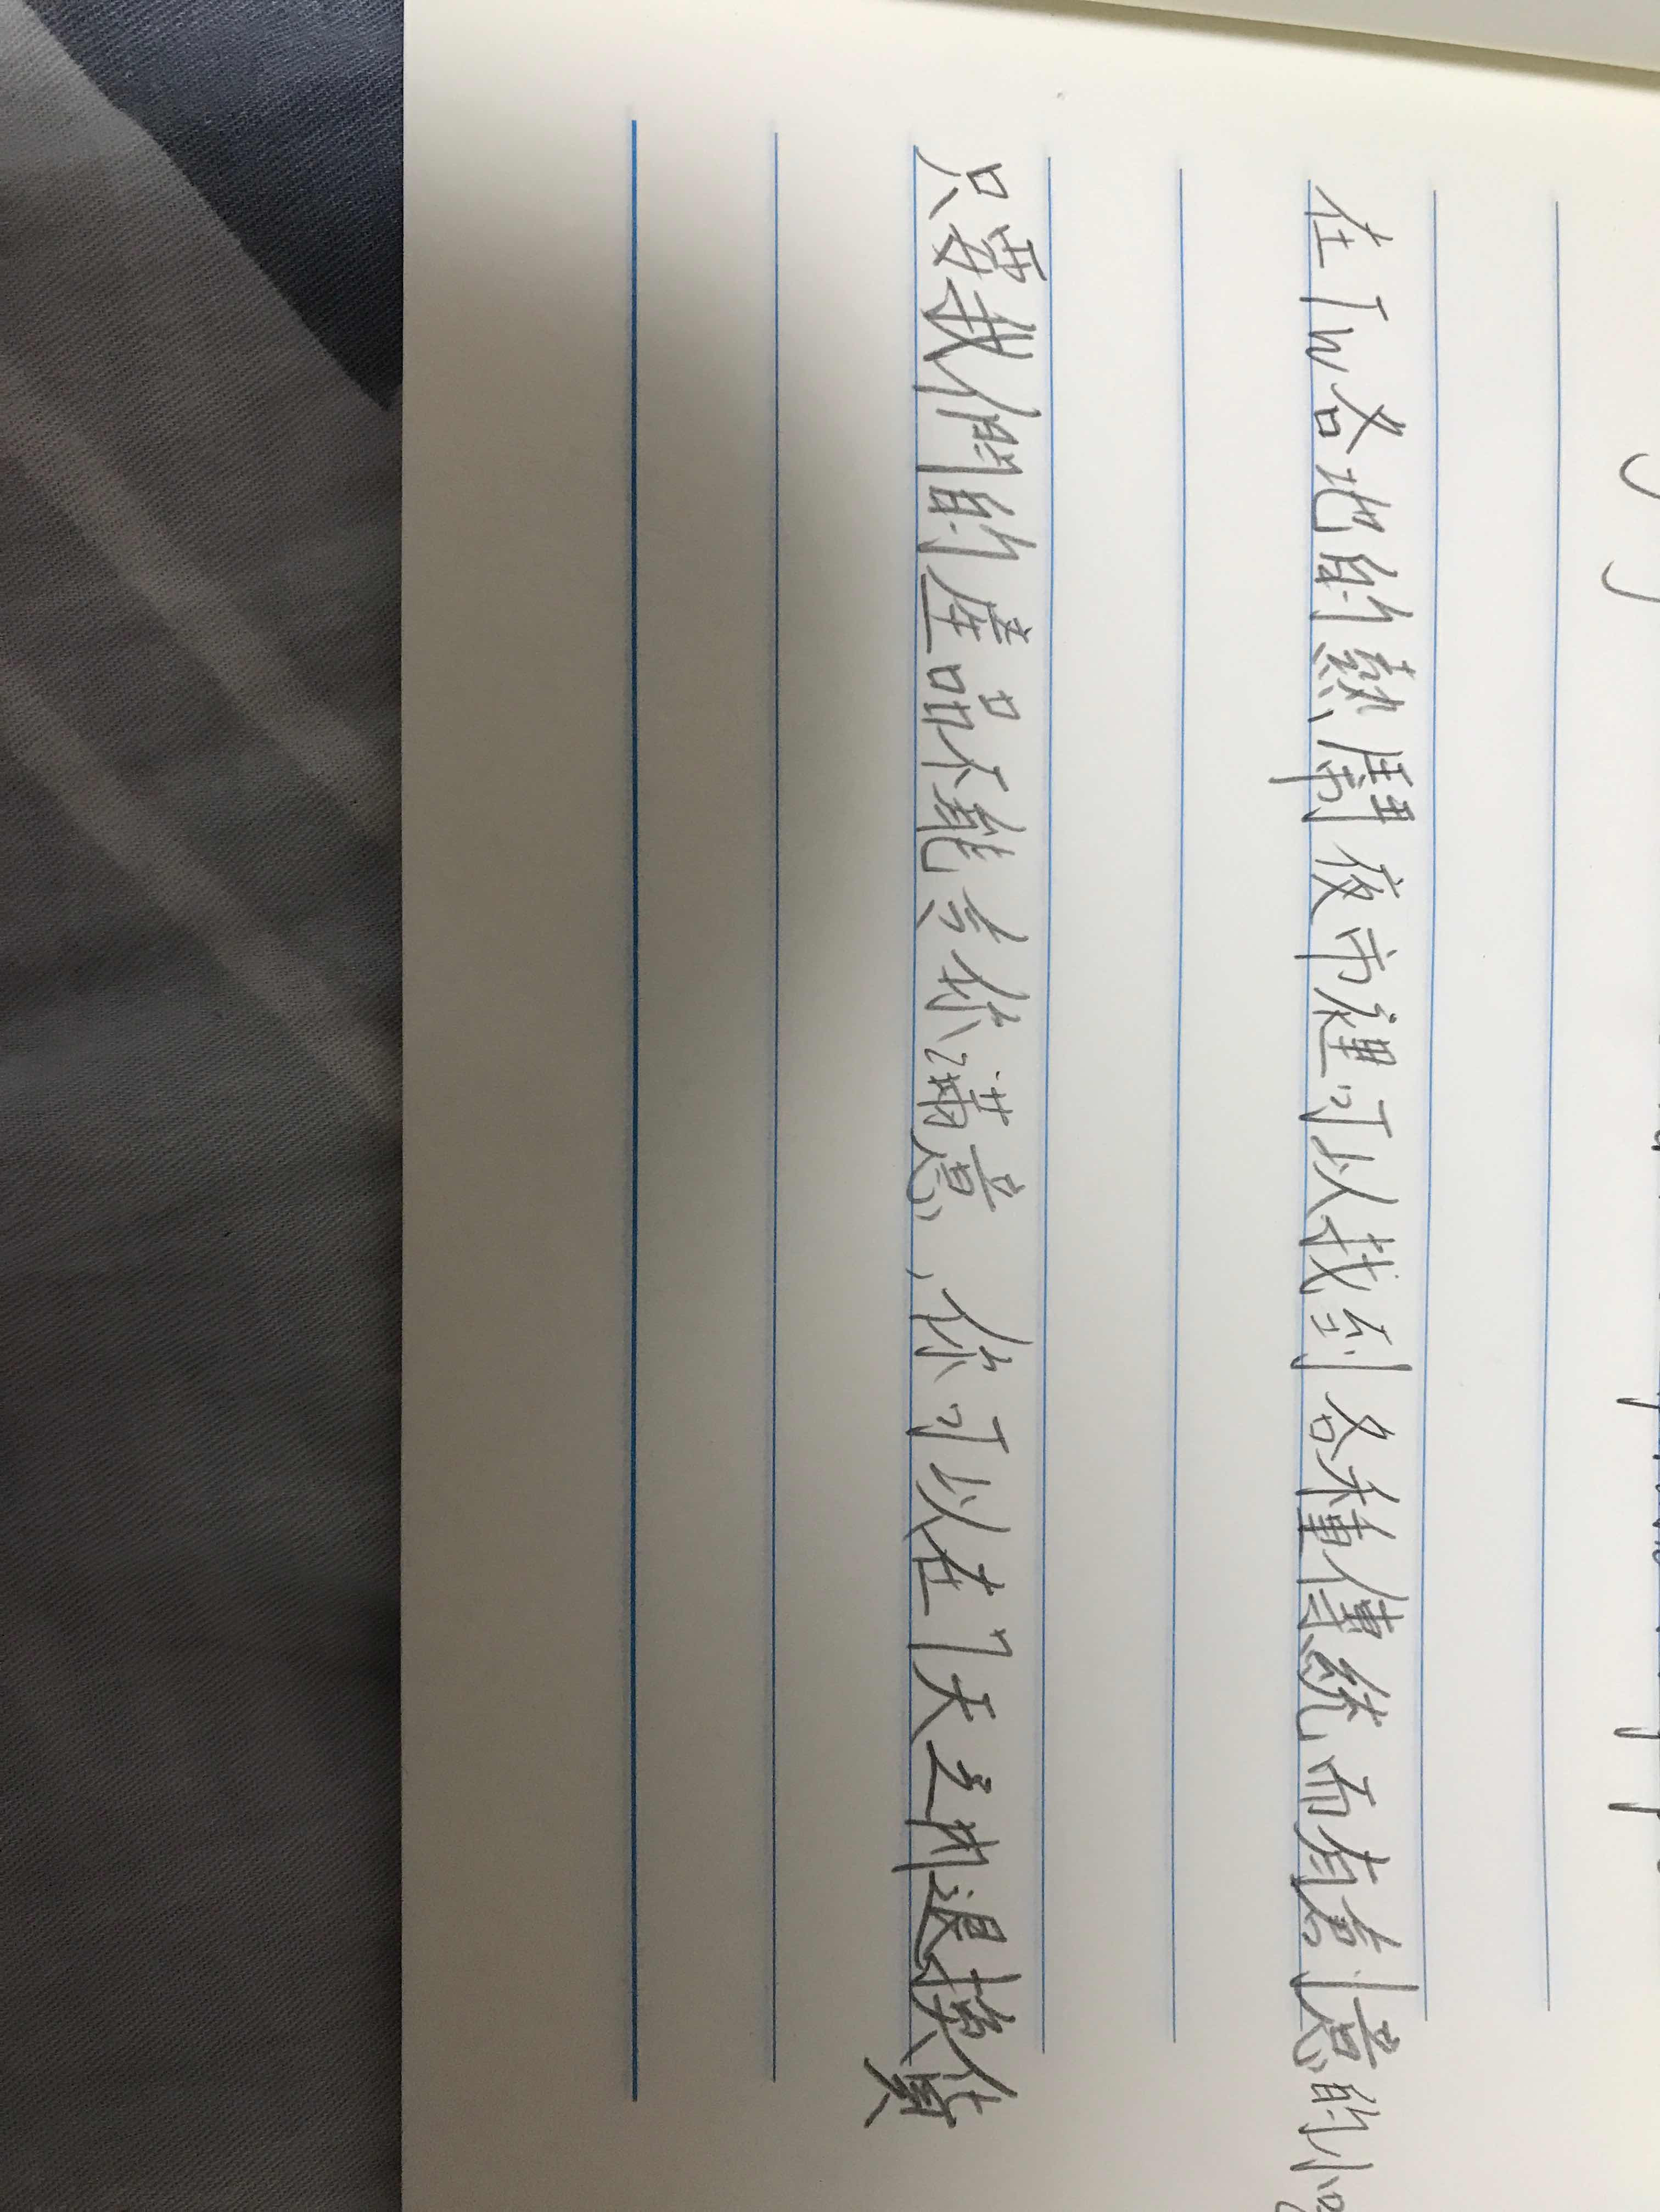 在TW各地的熱鬧夜市裡可以找到各種傳統而有創意的小
只要我們的產品不能令你滿意,你可以在7天之內退換貨